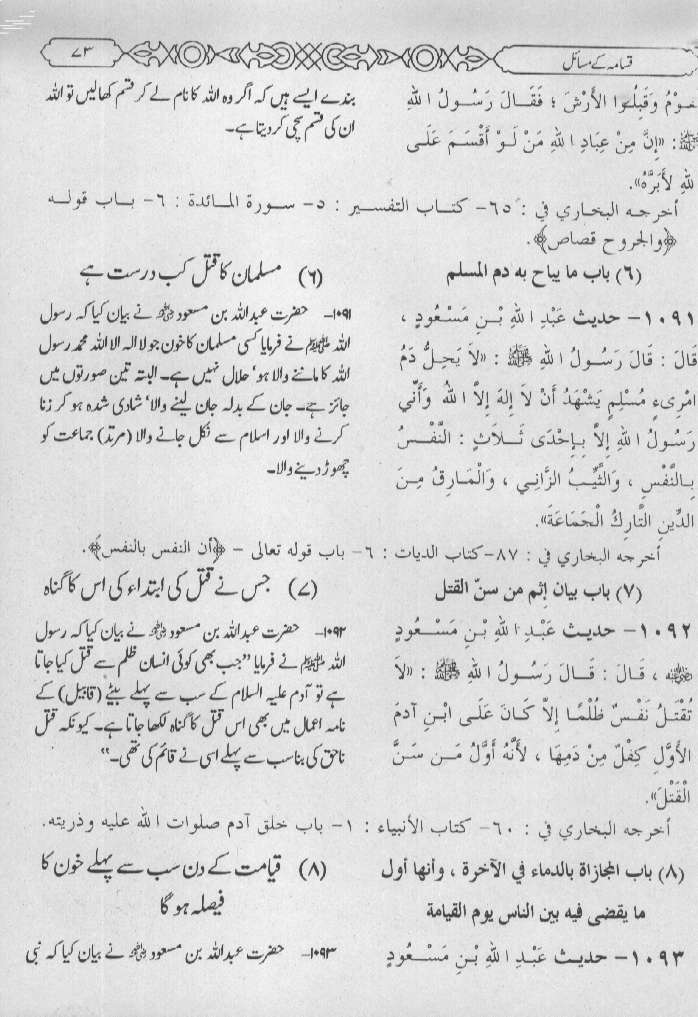 قسامہ کے مسائل
۷۳
وَقَبِلُوا الأَرْشَ ؛ فَقَالَ رَسُولُ اللهِ
ﷺ: «إِنَّ مِنْ عِبَادِ اللهِ مَنْ لَوْ أَقْسَمَ عَلَى
اللهِ لأَبَرَّهُ».
بندے ایسے ہیں کہ اگر وہ اللہ کا نام لے کر قسم کھالیں تو اللہ
ان کی قسم سچی کر دیتا ہے۔
أخرجه البخاري في : ٦٥- كتاب التفسير : ٥- سورة المائدة : ٦- باب قوله
﴿والجروح قصاص﴾.
(٦) باب ما يباح به دم المسلم
(۶) مسلمان کا قتل کب درست ہے
١٠٩١- حديث عَبْدِ اللهِ بْنِ مَسْعُودٍ ،
قَالَ : قَالَ رَسُولُ اللهِ ﷺ : «لاَ يَحِلُّ دَمُ
امْرِىءٍ مُسْلِمٍ يَشْهَدُ أَنْ لاَ إِلهَ إِلاَّ اللهُ وَأَنِّي
رَسُولُ اللهِ إِلاَّ بِإِحْدَى ثَلاَثٍ : النَّفْسُ
بِالنَّفْسِ ، وَالثَّيِّبُ الزَّانِي ، وَالْمَارِقُ مِنَ
الدِّينِ التَّارِكُ الْجَمَاعَةَ».
۱۰۹۱- حضرت عبداللہ بن مسعود ؓ نے بیان کیا کہ رسول
اللہ ﷺ نے فرمایا کسی مسلمان کا خون جو لا الہ الا اللہ محمد رسول
اللہ کا ماننے والا ہو‘ حلال نہیں ہے۔ البتہ تین صورتوں میں
جائز ہے۔ جان کے بدلہ جان لینے والا‘ شادی شدہ ہو کر زنا
کرنے والا اور اسلام سے نکل جانے والا (مرتد) جماعت کو
چھوڑ دینے والا۔
أخرجه البخاري في : ٨٧-كتاب الديات : ٦- باب قوله تعالى - ﴿أن النفس بالنفس﴾.
(٧) باب بيان إثم من سنّ القتل
(۷) جس نے قتل کی ابتداء کی اس کا گناہ
١٠٩٢- حديث عَبْدِ اللهِ بْنِ مَسْعُودٍ
ؓ ، قَالَ : قَالَ رَسُولُ اللهِ ﷺ : «لاَ
تُقْتَلُ نَفْسٌ ظُلْمًا إِلاَّ كَانَ عَلَى ابْنِ آدَمَ
الأَوَّلِ كِفْلٌ مِنْ دَمِهَا ، لأَنَّهُ أَوَّلُ مَنْ سَنَّ
الْقَتْلَ».
۱۰۹۲- حضرت عبداللہ بن مسعود ؓ نے بیان کیا کہ رسول
اللہ ﷺ نے فرمایا ”جب بھی کوئی انسان ظلم سے قتل کیا جاتا
ہے تو آدم علیہ السلام کے سب سے پہلے بیٹے (قابیل) کے
نامہ اعمال میں بھی اس قتل کا گناہ لکھا جاتا ہے۔ کیونکہ قتل
ناحق کی بنا سب سے پہلے اسی نے قائم کی تھی۔“
أخرجه البخاري في : ٦٠- كتاب الأنبياء : ١- باب خلق آدم صلوات الله عليه وذريته.
(٨) باب المجازاة بالدماء في الآخرة ، وأنها أول
ما يقضى فيه بين الناس يوم القيامة
(۸) قیامت کے دن سب سے پہلے خون کا
فیصلہ ہو گا
١٠٩٣- حديث عَبْدِ اللهِ بْنِ مَسْعُودٍ
۱۰۹۳- حضرت عبداللہ بن مسعود ؓ نے بیان کیا کہ نبی